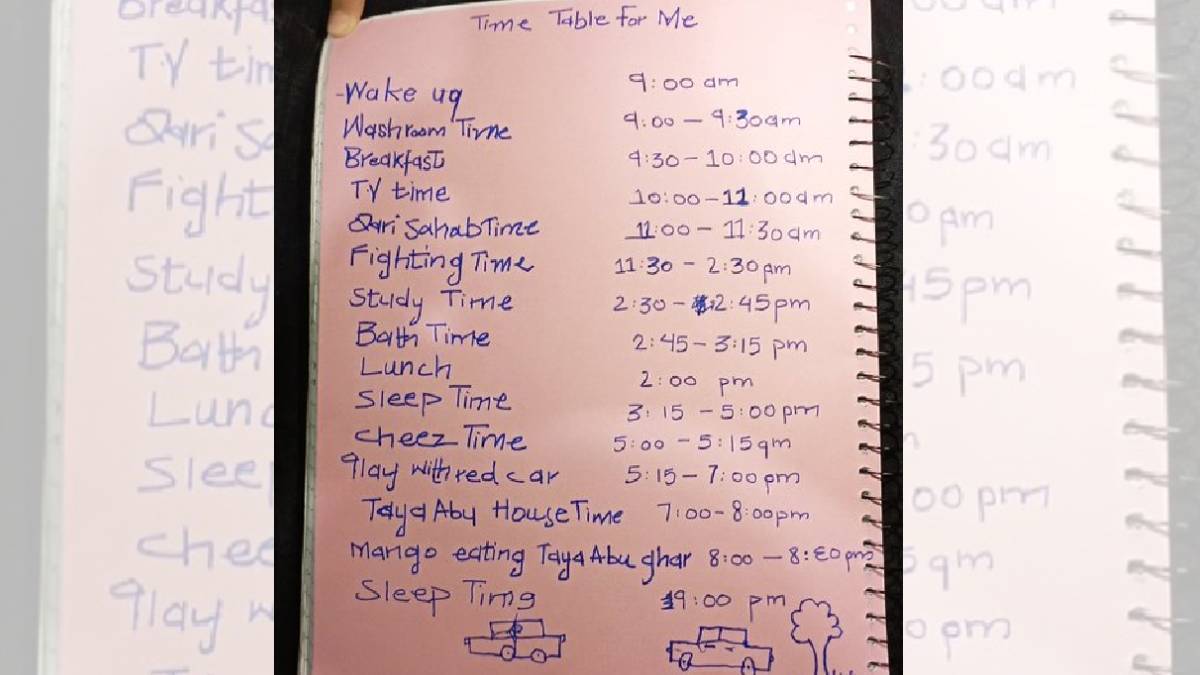 Time Table for Me
-Wake uq 9:00 am
Washroom Time 9:00 – 9:30am
Breakfast 9:30 – 10:00 am
TV time 10:00 – 11:00am
Qari Sahab Time 11:00 – 11:30am
Fighting Time 11:30 – 2:30pm
Study Time 2:30 – 2:45pm
Bath Time 2:45 – 3:15 pm
Lunch 2:00 pm
Sleep Time 3:15 – 5:00pm
cheez Time 5:00 – 5:15qm
qlay with red car 5:15 – 7:00pm
Taya Abu House Time 7:00 – 8:00pm
Mango eating Taya Abu ghar 8:00 – 8:30pm
Sleep Time 9:00 pm